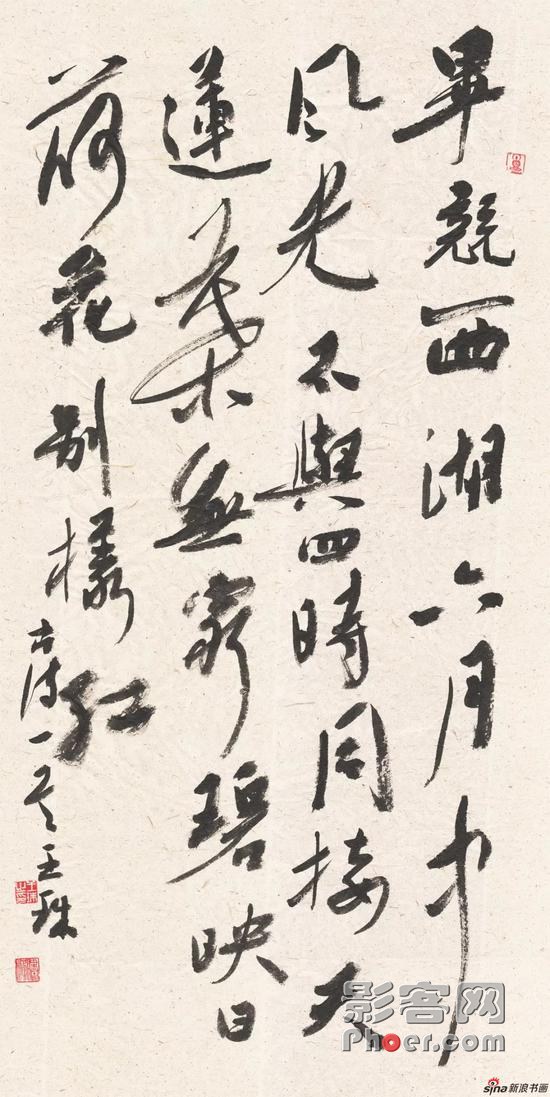 畢竟西湖六月中
風光不與四時同接天
蓮葉無窮碧映日
荷花别樣紅
古诗一首王珠
影客网
Phoer.com
sina新浪书画